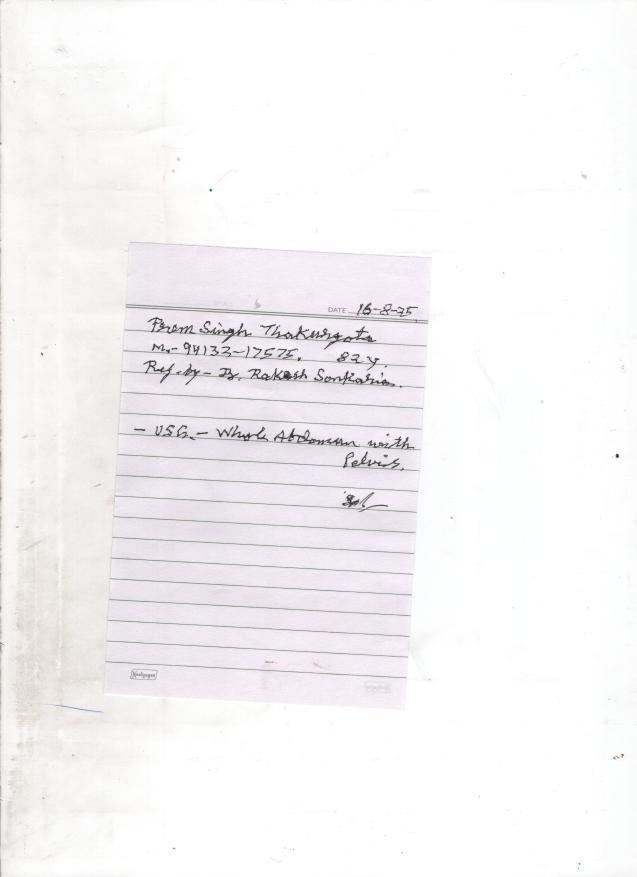 DATE 16-8-25
Prem Singh Thakurgota
M.- 94133-17575. 82 y.
Ref. by - Dr. Rakesh Sonkaria.
- USG. - Whole Abdomen with
Pelvis.